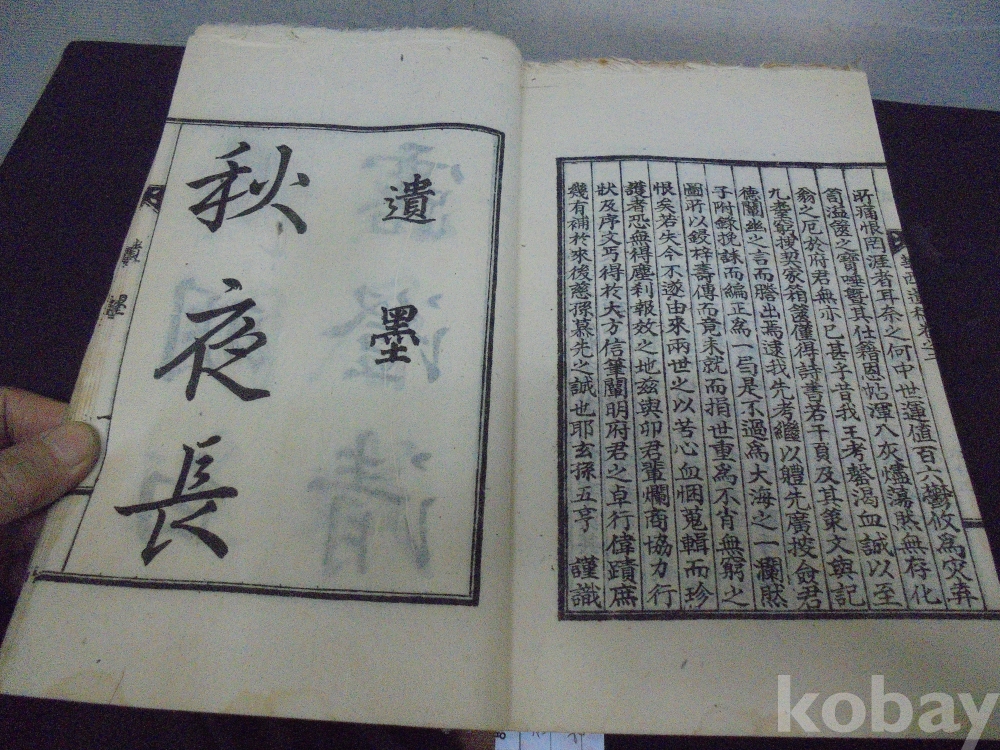 所痛恨罔涯者耳奈之何中世薄値百六欝攸為灾弆
笥溢篋之寶唾曁其仕籍恩帖渾入灰燼蕩然無存化
翁之厄於府君無亦已甚乎昔我王考罄渴血誠以至
九耋窮搜契家箱篋僅得詩書若干頁及其策文與記
德闡幽之言而謄出焉逮我先考繼以軆先廣按僉君
子附錄挽誄而編正為一局是不過為大海之一瀾然
圖所以鋟梓壽傳而竟未就而捐世重為不肖無窮之
恨矣若失今不遂由來兩世之以苦心血悃蒐輯而珍
護者恐無得塵利報效之地玆與卯君輩爛商協力行
狀及序文丐得於大方信筆闡明府君之卓行偉蹟庶
幾有補於來後慈孫慕先之誠也耶玄孫五亨 謹識
遺墨
秋夜長
遺墨 一
kobay